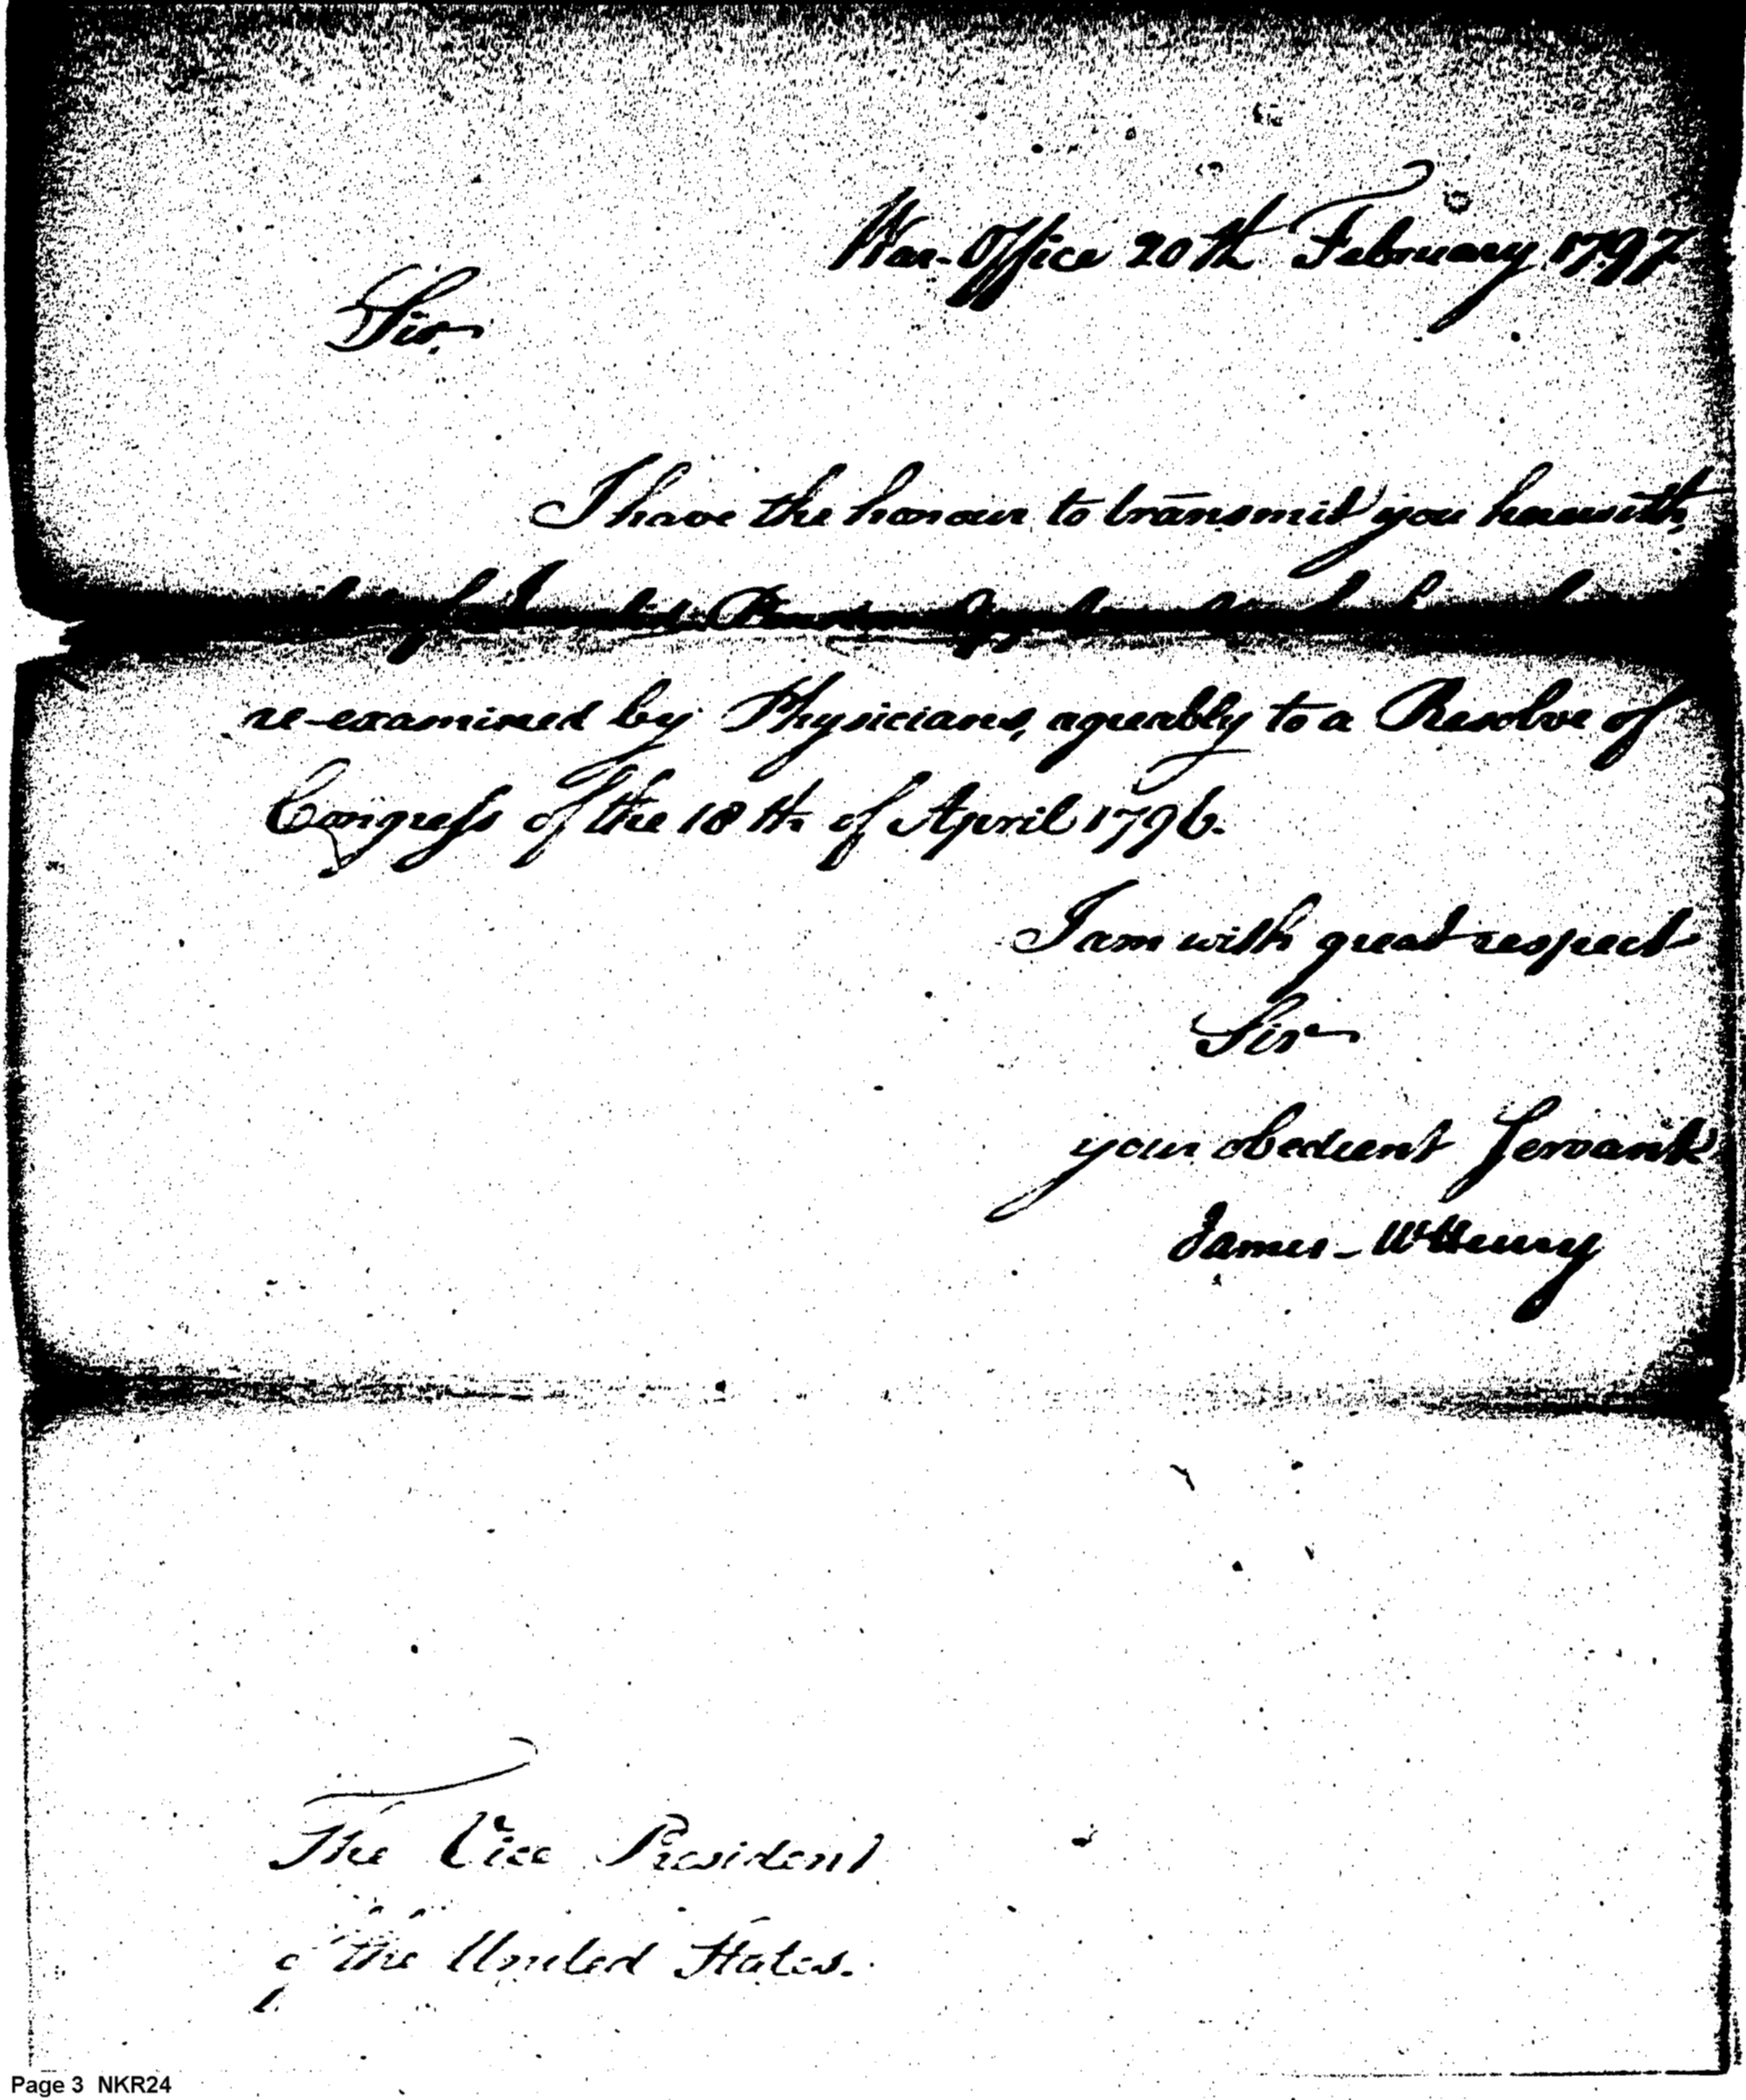 War-Office 20th February 1797
Sir.
I have the honour to transmit you herewith,
of Invalid Pension
re-examined by Physicians, agreably to a Resolve of
Congress of the 18th of April 1796.
I am with great respect
Sir
your obedient Servant
James McHenry
The Vice President
of the United States.
Page 3 NKR24